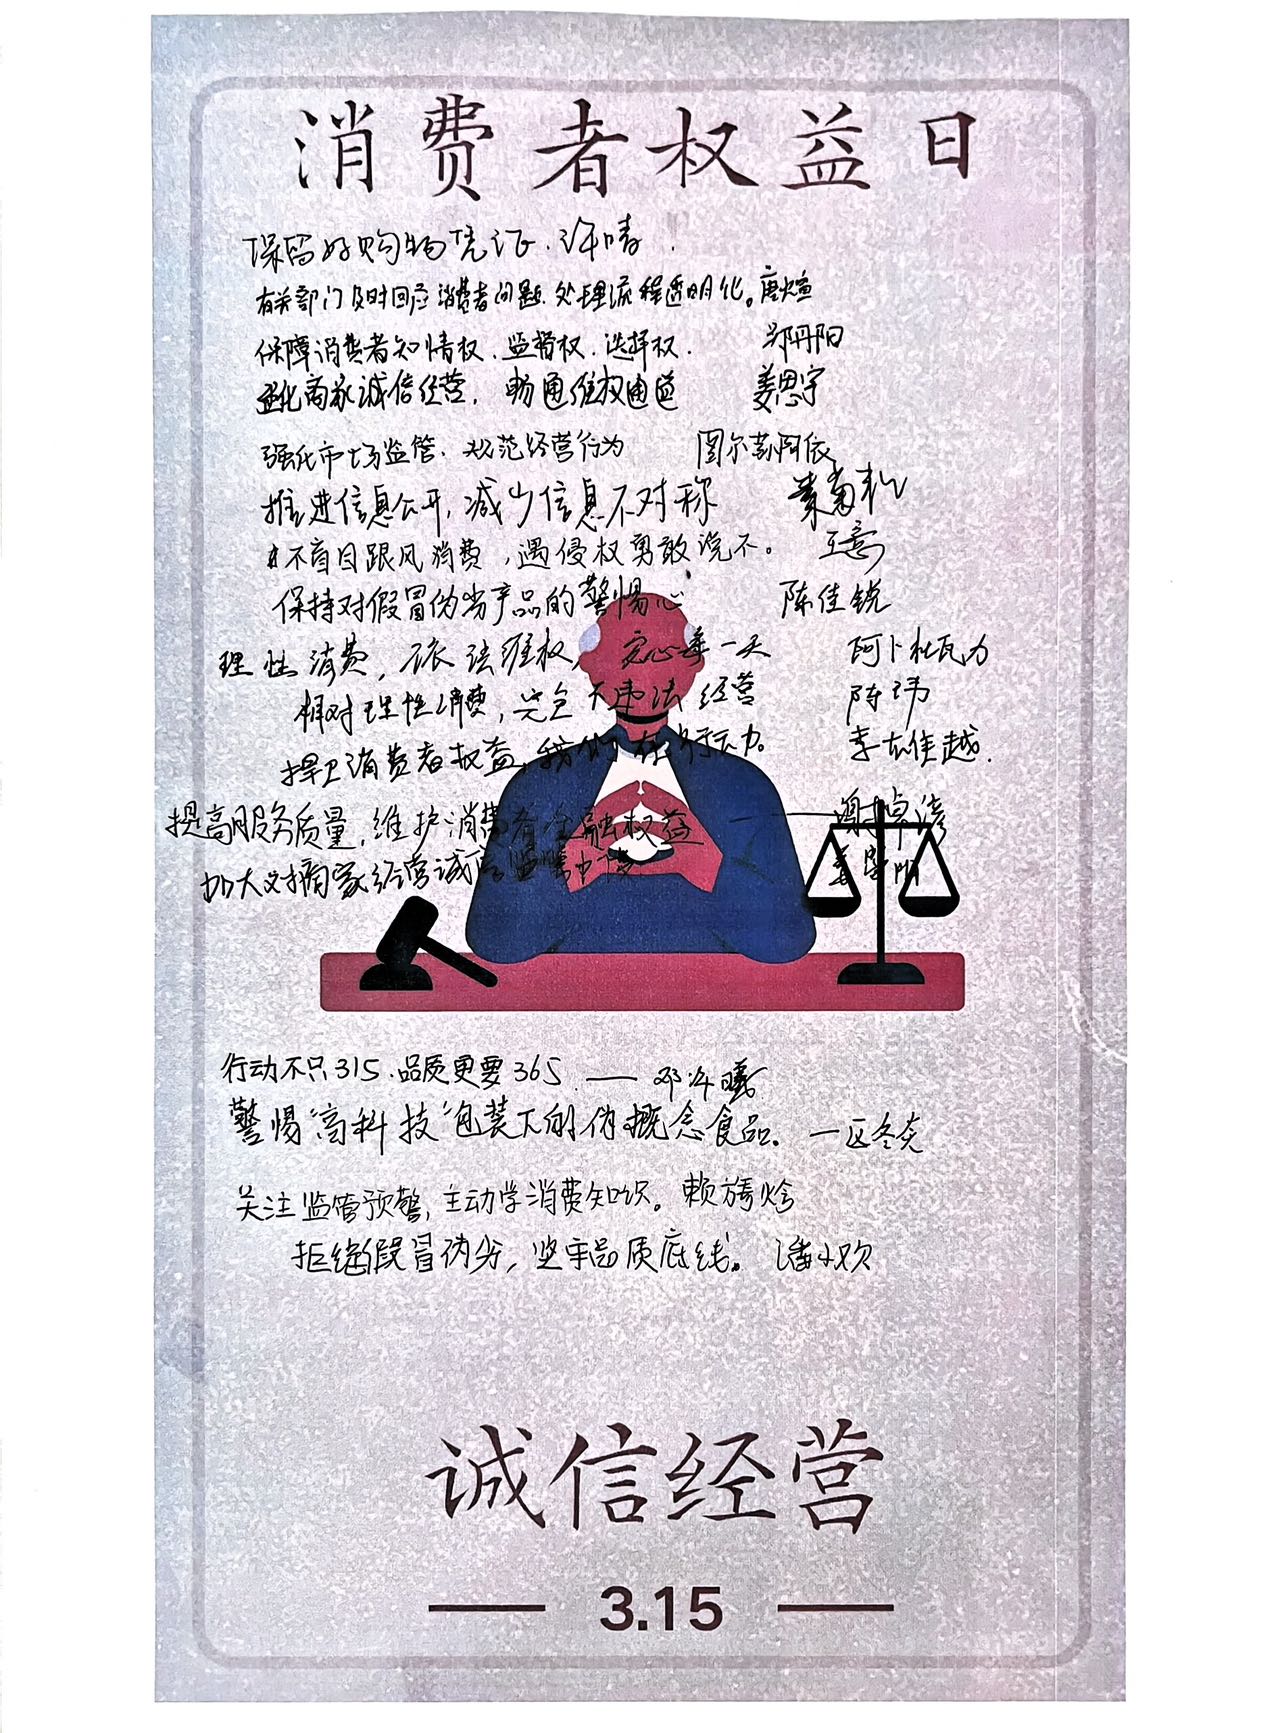 消费者权益日
保留好购物凭证.许晴.
有关部门及时回应消费者问题.处理流程透明化。唐煊
保障消费者知情权.监督权.选择权. 郑丹阳
强化商家诚信经营,畅通维权通道 姜思宇
强化市场监管.规范经营行为 图尔荪阿依
推进信息公开,减少信息不对称
不盲目跟风消费,遇侵权勇敢说不。 王意
保持对假冒伪劣产品的警惕心 陈佳锐
理性消费,依法维权,安心每一天 阿卜杜瓦力
理性消费, 违法经营 陈玮
捍卫消费者权益,我们在行动。 李佳越.
提高服务质量,维护消费者金融权益 —— 谢卓
加大对商家经营诚信监督力度 姜
行动不只315.品质更要365. —— 邓许曦
警惕“高科技”包装下的伪概念食品。 —区冬炎
关注监管预警,主动学消费知识。赖
拒绝假冒伪劣,坚守品质底线。潘小欢
诚信经营
3.15